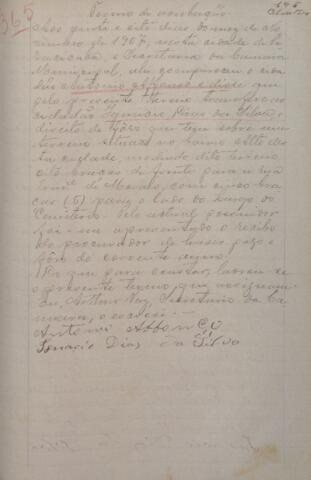 365
Termo de
Aos vinte e oito dias do mez de de-
zembro de 1907, nesta cidade de Pi-
racicaba, e Secretaria da Camara
Municipal, ahi compareceu o cida-
dão Antonio Affonso e disse que
pelo presente termo transfere ao
cidadão Ignacio Dias da Silva, o
direito de posse que tem sobre um
terreno situado no bairro alto des-
ta cidade, medindo dito terreno
oito braças de frente para a rua
de Moraes, com cinco bra-
ças (5) para o lado do Largo do
Cemiterio. Pelo actual possuidor
foi me apresentado o recibo
do procurador de haver pago o
fôro do corrente anno.
Do que para constar, lavrou-se
o presente termo, que assignam.
Eu, Arthur Vaz, Secretario da Ca-
mara, o escrevi.
Antonio Affonço
Ignacio Dias da Silva